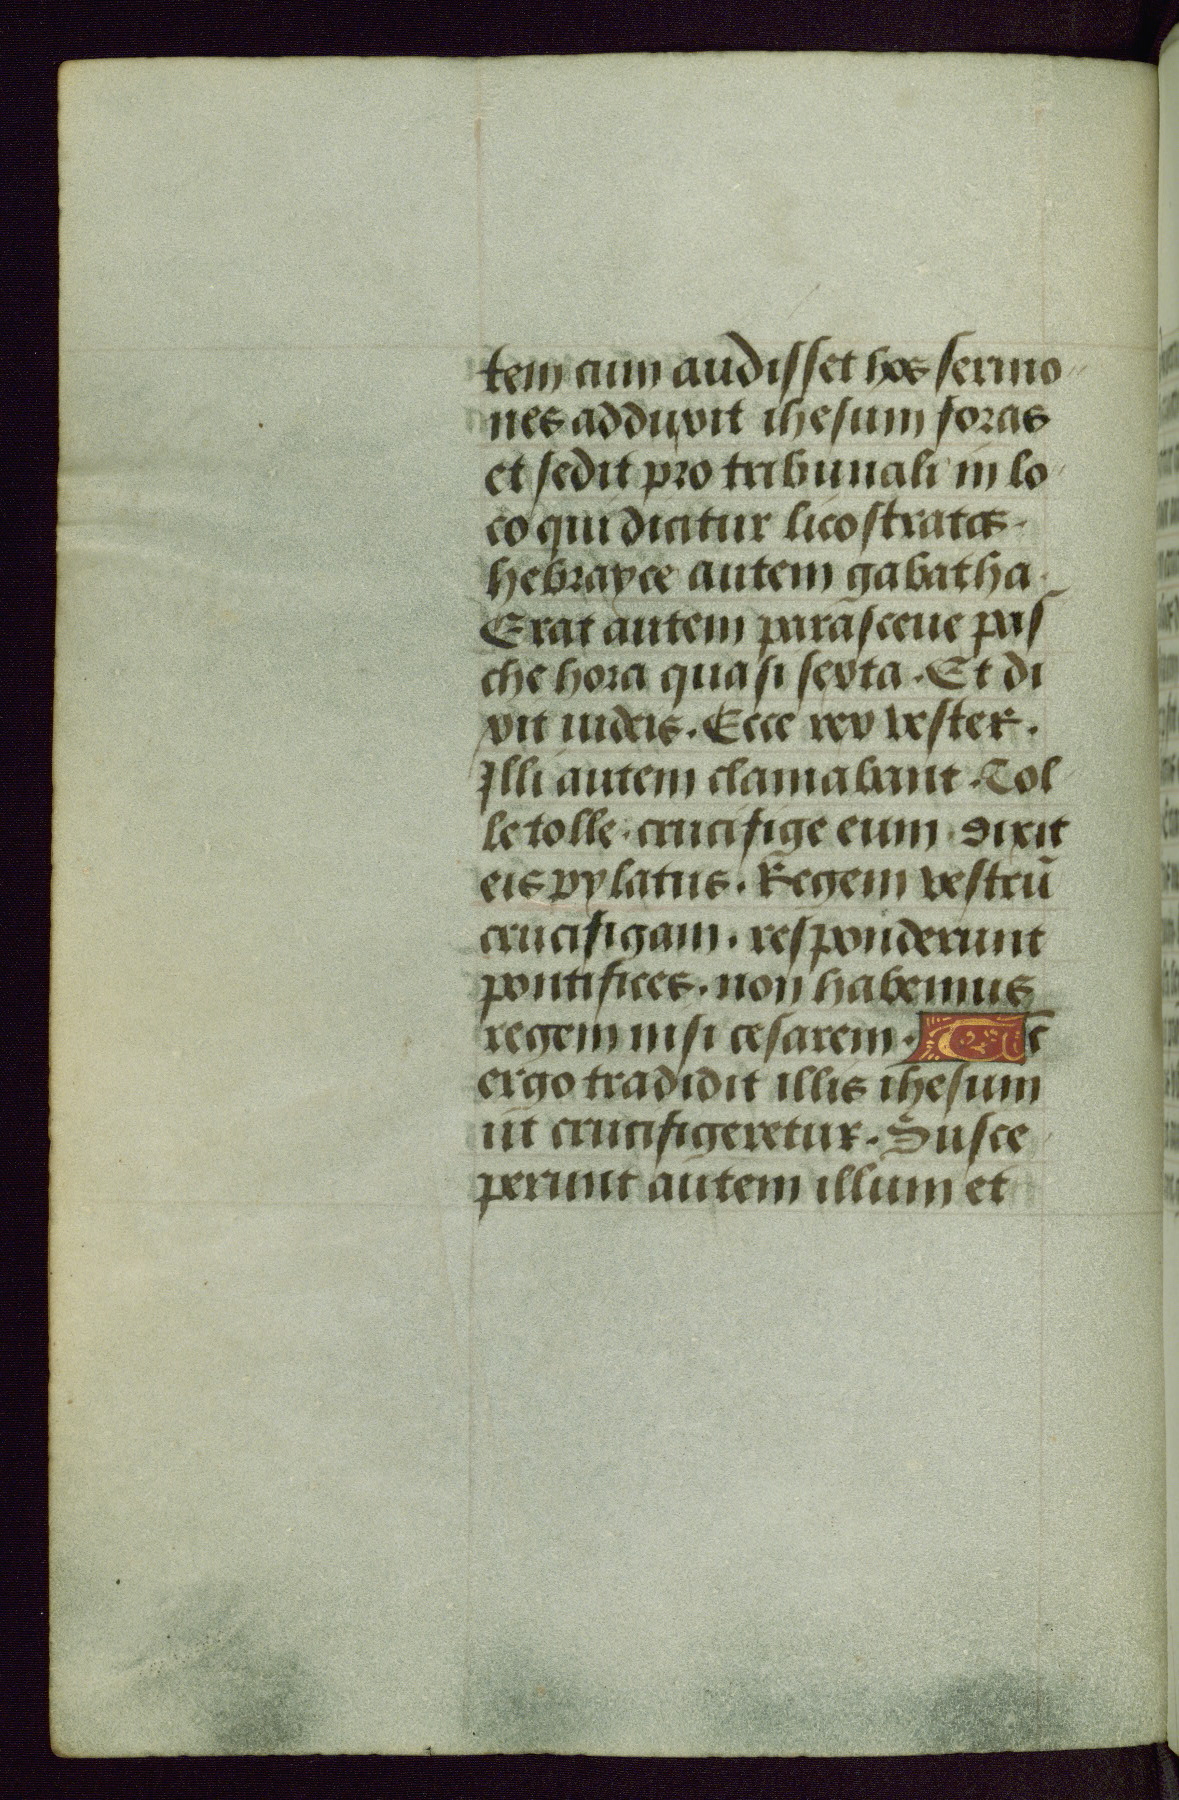 tem cum audisset hos sermo
nes adduxit ihesum foras
et sedit pro tribunali in lo
co qui dicitur licostratos.
hebrayce autem gabatha.
Erat autem parasceue pas
che hora quasi sexta. Et di
xit iudeis. Ecce rex vester.
Illi autem clamabant. Tol
le tolle. crucifige eum. Dixit
eis pylatus. Regem vestrū
crucifigam. responderunt
pontifices. non habemus
regem nisi cesarem. Tūc
ergo tradidit illis ihesum
ut crucifigeretur. Susce
perunt autem illum et